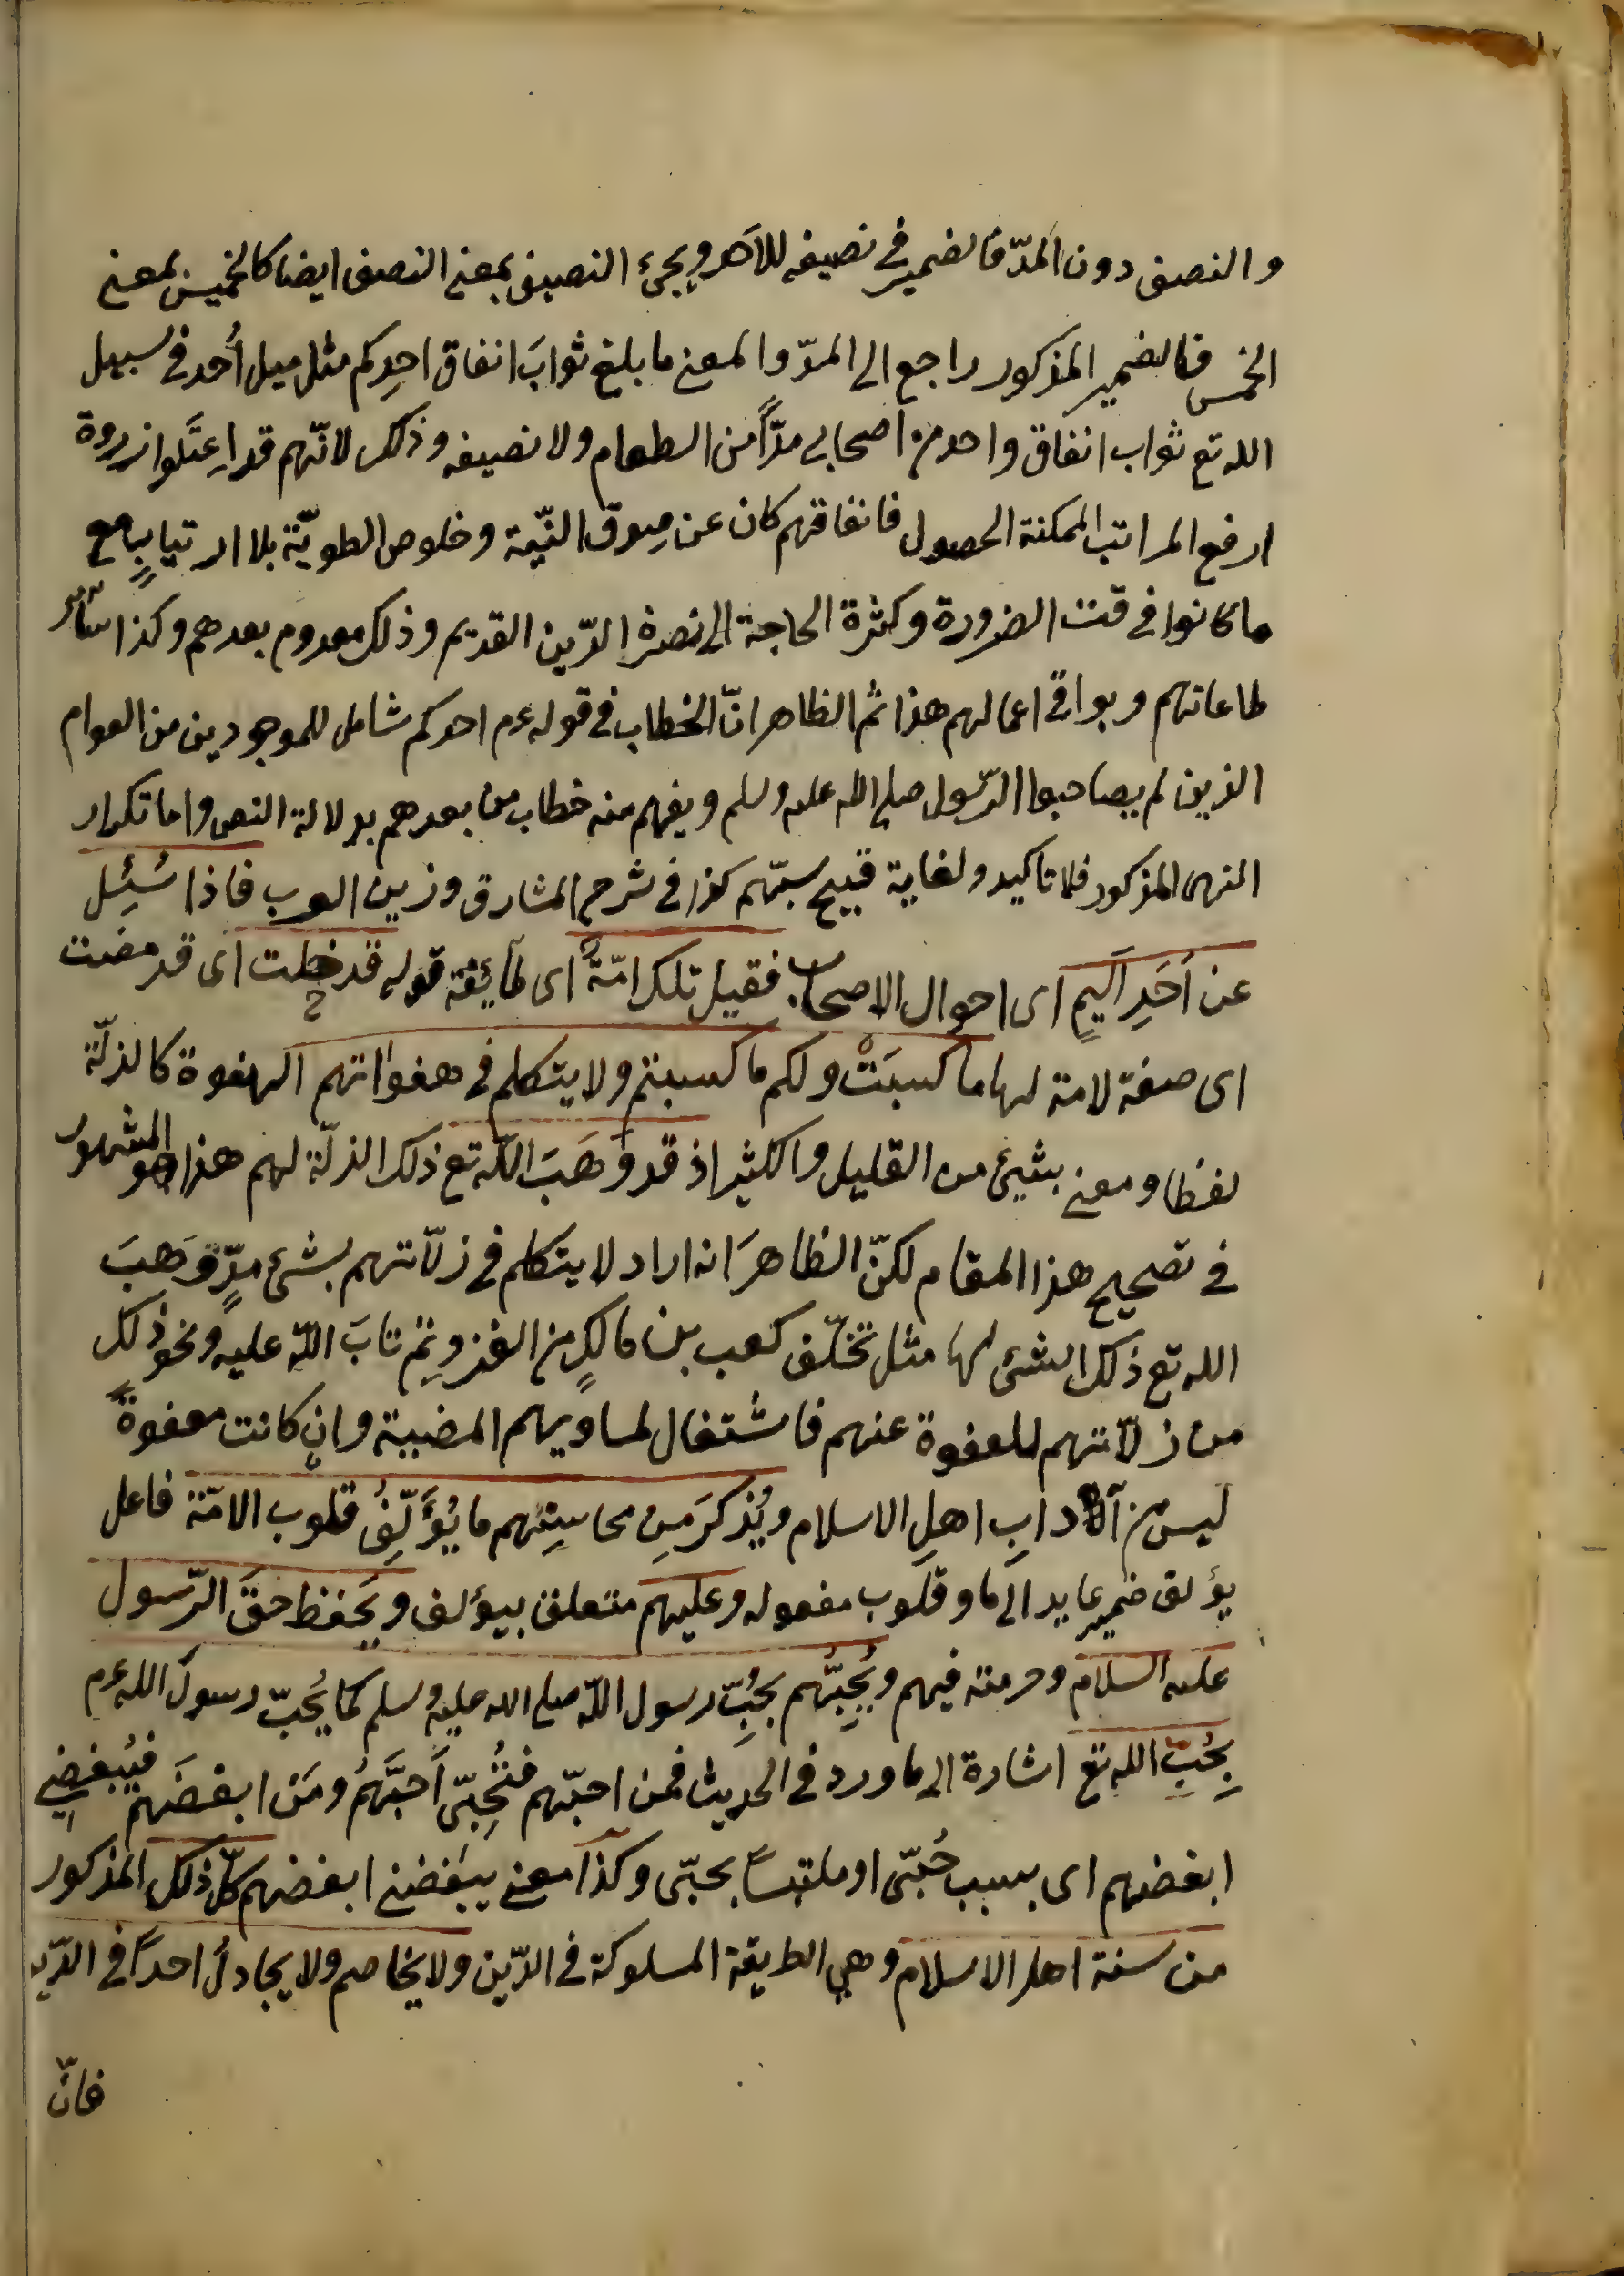 والنصف دون المدّ فالضمير في نصيفه للاحد ويجئ النصيف بمعنى النصف ايضا كالخميس بمعنى
الخمس فالضمير المذكور راجع الى المدّ والمعنى ما بلغ ثوابَ انفاق احدِكم مثل ميل أُحد في سبيل
الله تع ثواب انفاق واحد من اصحابى مدّاً من الطعام ولا نصيفه وذلك لانّهم قد اِعتَلوا ذروة
ارفع المراتب الممكنة الحصول فانفاقهم كان عن صدق النّية وخلوص الطويّة بلا ارتيابٍ مع
ما كانوا في قت الضرورة وكثرة الحاجة الى نصرة الدّين القديم وذلك معدوم بعدهم وكذا سآئر
طاعاتهم وبواقى اعمالهم هذا ثم الظاهر انّ الخطاب في قوله عم احدكم شامل للموجودين من العوام
الذين لم يصاحبوا الرّسول صلى الله عليه وسلم ويفهم منه خطاب من بعدهم بدلالة النص واما تكرار
النهى المذكور فللتاكيد ولغاية قبيح سبّهم كذا في شرح المشارق وزين العرب فاذا سُئِل
عن اَحَدِ اليهِم اى احوال الاصحاب فقيل تلك امّةٌ اى طآئفة قوله قد خلت اى قد مضت
اى صفة لامة لها ما كسبَتْ ولكم ما كسبتم ولا يتكلم في هفواتهم الهفوة كالزلّة
لفظا ومعنى بشيئ من القليل والكثير اذ قد وَهَبَ اللّه تع ذلك الزلّة لهم هذا هو المشهور
في تصحيح هذا المقام لكنّ الظاهرَ انه اراد لا يتكلم في زلّاتهم بشئ وَهبَ
الله تع ذلك الشئ لها مثل تخلّف كعب بن مالكٍ من الغزو ثم تابَ اللّه عليه ونحو ذلك
من زلّاتهم المعفوة عنهم فاشتغال لمساويهم المضيية وان كانت معفوةً
ليس من آداب اهلِ الاسلام ويُذكرَ مِن محاسِنِهم ما يُؤَلّفُ قلوب الامّة فاعل
يؤلف ضمير عايد الى ما وقلوب مفعوله وعليهم متعلق بيؤلف ويَحفظ حقَ الرّسول
عليه السلام وحرمته فيهم ويُحِبُّهم بحُبِّ رسول اللّه صلى الله عليه وسلم كما يُحبّ رسول الله عم
بِحُبِّ الله تع اشارة الى ما ورد في الحديث فمن احبّهم فبُحِبّى اَحبَّهُم ومَن ابغضَهم فبُبغضى
ابغضهم اى بسبب حُبّى او ملتبساً بحبّى وكذا معنى ببغضى ابغضهم كلّ ذلك المذكور
من سنة اهل الاسلام وهي الطريقة المسلوكة في الدّين ولا يخاصم ولا يجادلُ احداً في الدّين
فانّ